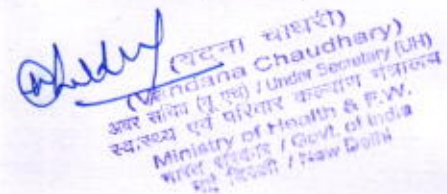 (वंदना चौधरी)
(Vandana Chaudhary)
अवर सचिव (यू एच) / Under Secretary (UH)
स्वास्थ्य एवं परिवार कल्याण मंत्रालय
Ministry of Health & F.W.
भारत सरकार / Govt. of India
नई दिल्ली / New Delhi